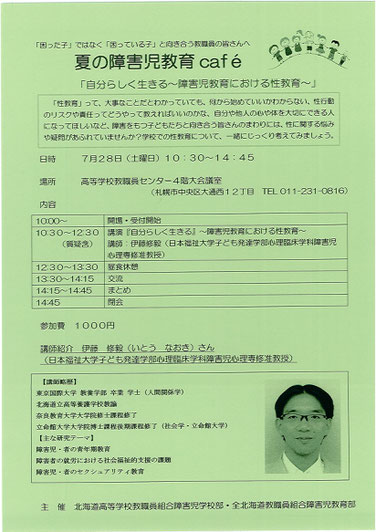 「困った子」ではなく「困っている子」と向き合う教職員の皆さんへ
夏の障害児教育 café
「自分らしく生きる～障害児教育における性教育～」
「性教育」って、大事なことだとわかっていても、何から始めていいかわからない、性行動
のリスクや責任ってどうやって教えればいいのかな、自分や他人の心や体を大切にできる人
になってほしいなと、障害をもつ子どもたちと向き合う皆さんのまわりには、性に関する悩み
や疑問があふれていませんか？学校での性教育について、一緒にじっくり考えてみましょう。
日時 7月28日（土曜日）10：30～14：45
場所 高等学校教職員センター４階大会議室
（札幌市中央区大通西１２丁目 TEL 011-231-0816）
内容
10:00～ 開場・受付開始
10:30～12:30 講演『自分らしく生きる』～障害児教育における性教育～
（質疑含） 講師：伊藤修毅（日本福祉大学子ども発達学部心理臨床学科障害児
心理専修准教授）
12:30～13:30 昼食休憩
13:30～14:15 交流
14:15～14:45 まとめ
14:45 閉会
参加費 １０００円
講師紹介 伊藤 修毅（いとう なおき）さん
（日本福祉大学子ども発達学部心理臨床学科障害児心理専修准教授）
【講師略歴】
東京国際大学 教養学部 卒業 学士（人間関係学）
北海道立高等養護学校教諭
奈良教育大学大学院修士課程修了
立命館大学大学院博士課程後期課程修了（社会学・立命館大学）
【主な研究テーマ】
障害児・者の青年期教育
障害者の就労における社会福祉的支援の課題
障害児・者のセクシュアリティ教育
主 催 北海道高等学校教職員組合障害児学校部・全北海道教職員組合障害児教育部